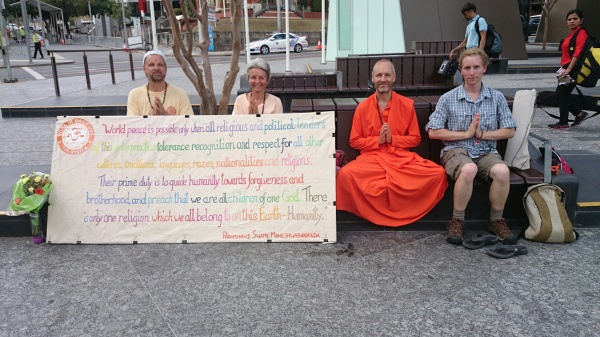 "World peace is possible only when all religious and political leaders
tolerance, recognition and respect for all other
cultures, traditions, languages, races, nationalities and religions.
Their prime duty is to guide humanity towards forgiveness and
brotherhood, and preach that we are all children of one God. There
is only one religion which we all belong to on this Earth - Humanity."
PARAMHANS SWAMI MAHESHWARANANDA